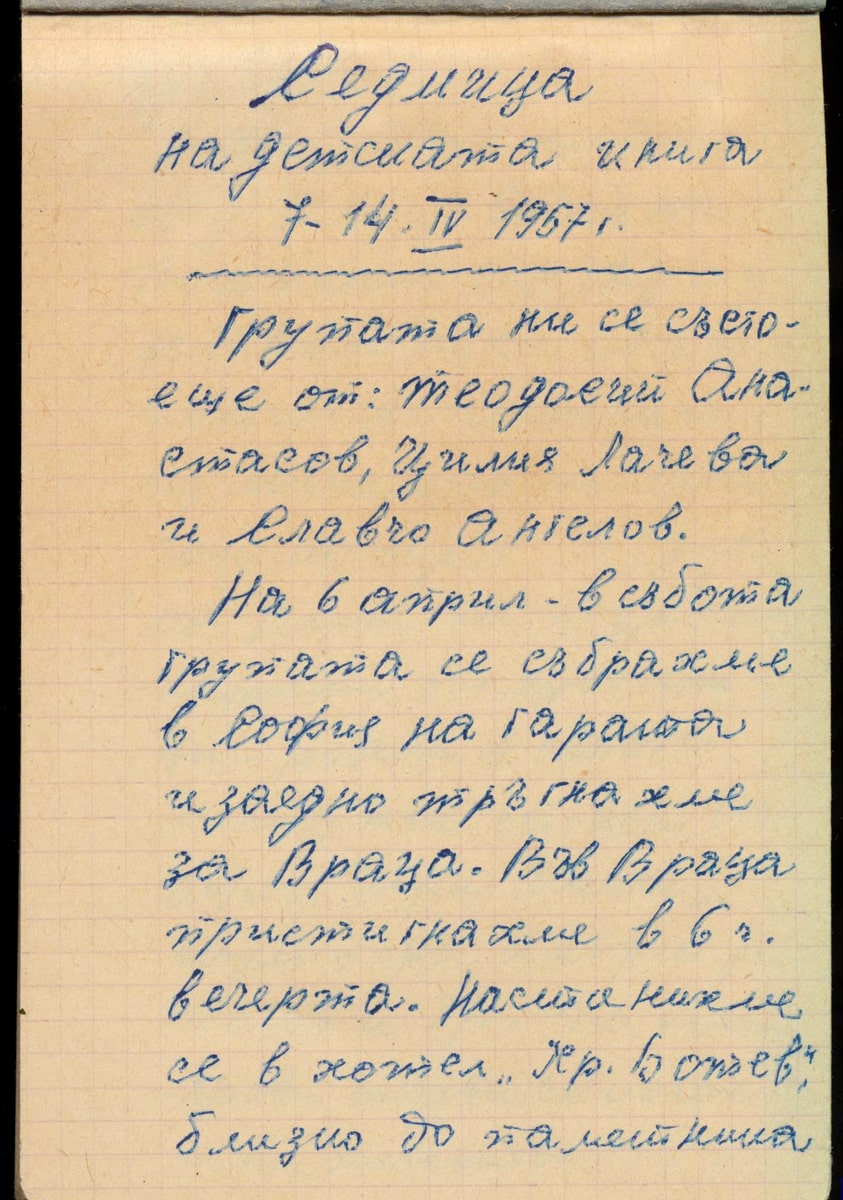 Седмица
на детската книга
7-14. IV 1957 г.
Групата ни се състо-
еше от: Теодосий Ана-
стасов, Цилия Лачева
и Славчо Ангелов.
На 6 април - в събота
групата се събрахме
в София на гарата
и заедно тръгнахме
за Враца. Във Враца
пристигнахме в 6 ч.
вечерта. Настанихме
се в хотел „Хр. Ботев",
близко до паметника